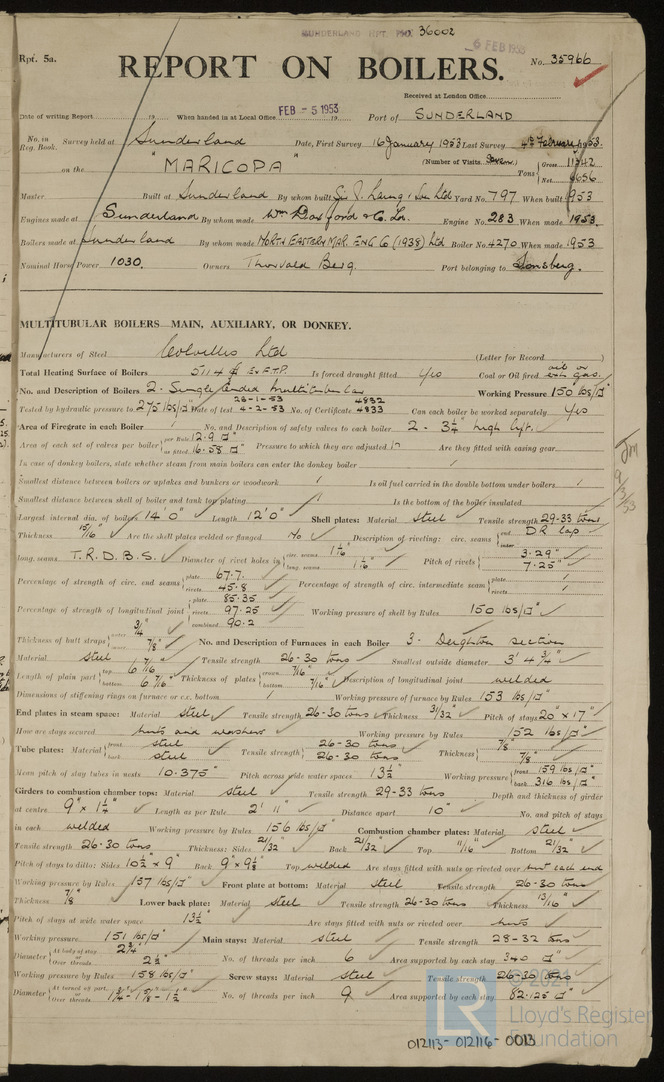 SUNDERLAND RPT. No. 36002
6 FEB 1953
Rpt. 5a.
REPORT ON BOILERS.
No. 35966
Received at London Office
Date of writing Report 19 When handed in at Local Office FEB - 5 1953 19 Port of SUNDERLAND
No. in Reg. Book. Survey held at Sunderland Date, First Survey 16 January 1953 Last Survey 4th February 1953.
on the "MARICOPA" (Number of Visits ) Tons Gross 11342 Net 6656
Master Built at Sunderland By whom built Sir J. Laing & Sons Ltd Yard No. 797 When built 1953
Engines made at Sunderland By whom made Wm Doxford & Co. Ld. Engine No. 283 When made 1953.
Boilers made at Sunderland By whom made NORTH EASTERN MAR. ENG Co (1938) Ltd Boiler No. 4270 When made 1953
Nominal Horse Power 1030. Owners Thorvald Berg. Port belonging to Tonsberg.
MULTITUBULAR BOILERS—MAIN, AUXILIARY, OR DONKEY.
Manufacturers of Steel Colvilles Ltd (Letter for Record )
Total Heating Surface of Boilers 5114 Is forced draught fitted yes Coal or Oil fired oil or exh gas.
No. and Description of Boilers 2. Single ended multitubular Working Pressure 150 lbs/□"
Tested by hydraulic pressure to 275 lbs/□" Date of test 28-1-53 4-2-53 No. of Certificate 4832 4833 Can each boiler be worked separately yes
Area of Firegrate in each Boiler / No. and Description of safety valves to each boiler 2 - 3¼" high lift.
Area of each set of valves per boiler per Rule 12.9 □" as fitted 16.58 □" Pressure to which they are adjusted Are they fitted with easing gear
In case of donkey boilers, state whether steam from main boilers can enter the donkey boiler /
Smallest distance between boilers or uptakes and bunkers or woodwork / Is oil fuel carried in the double bottom under boilers /
Smallest distance between shell of boiler and tank top plating / Is the bottom of the boiler insulated
Largest internal dia. of boilers 14' 0" Length 12' 0" Shell plates: Material steel Tensile strength 29-33 tons
Thickness 15/16" Are the shell plates welded or flanged No Description of riveting: circ. seams end DR lap inter /
long. seams T.R.D.B.S. Diameter of rivet holes in circ. seams 1 1/16" long. seams 1 1/16" Pitch of rivets 3.29" 7.25"
Percentage of strength of circ. end seams plate 67.7. rivets 45.8 Percentage of strength of circ. intermediate seam plate / rivets /
Percentage of strength of longitudinal joint plate 85.35 rivets 97.25 combined 90.2 Working pressure of shell by Rules 150 lbs/□"
Thickness of butt straps outer 3/4" inner 7/8" No. and Description of Furnaces in each Boiler 3. Deighton section
Material steel Tensile strength 26-30 tons Smallest outside diameter 3' 4¾"
Length of plain part top 6 7/16" bottom 6 7/16" Thickness of plates crown 7/16" bottom 7/16" Description of longitudinal joint welded
Dimensions of stiffening rings on furnace or c.c. bottom / Working pressure of furnace by Rules 153 lbs/□"
End plates in steam space: Material steel Tensile strength 26-30 tons Thickness 31/32" Pitch of stays 20" x 17"
How are stays secured nuts and washers Working pressure by Rules 152 lbs/□"
Tube plates: Material front steel back steel Tensile strength 26-30 tons 26-30 tons Thickness 7/8" 7/8"
Mean pitch of stay tubes in nests 10.375" Pitch across wide water spaces 13½" Working pressure front 159 lbs/□" back 316 lbs/□"
Girders to combustion chamber tops: Material steel Tensile strength 29-33 tons Depth and thickness of girder
at centre 9" x 1¼" Length as per Rule 2' 11" Distance apart 10" No. and pitch of stays
in each welded Working pressure by Rules 156 lbs/□" Combustion chamber plates: Material steel
Tensile strength 26-30 tons Thickness: Sides 21/32" Back 21/32" Top 11/16" Bottom 21/32"
Pitch of stays to ditto: Sides 10½" x 9" Back 9" x 9⅛" Top welded Are stays fitted with nuts or riveted over nut each end
Working pressure by Rules 157 lbs/□" Front plate at bottom: Material steel Tensile strength 26-30 tons
Thickness 7/8" Lower back plate: Material steel Tensile strength 26-30 tons Thickness 13/16"
Pitch of stays at wide water space 13½" Are stays fitted with nuts or riveted over nuts
Working pressure 151 lbs/□" Main stays: Material steel Tensile strength 28-32 tons
Diameter At body of stay 2¾" or Over threads 2½" No. of threads per inch 6 Area supported by each stay 340 □"
Working pressure by Rules 158 lbs/□" Screw stays: Material steel Tensile strength 26-30 tons
Diameter At turned off part or Over threads 1¾" - 1⅝" - 1½" No. of threads per inch 9 Area supported by each stay 82.125 □"
9/3/53
© 2021
LR
Lloyd's Register
Foundation
012113-012116-0013